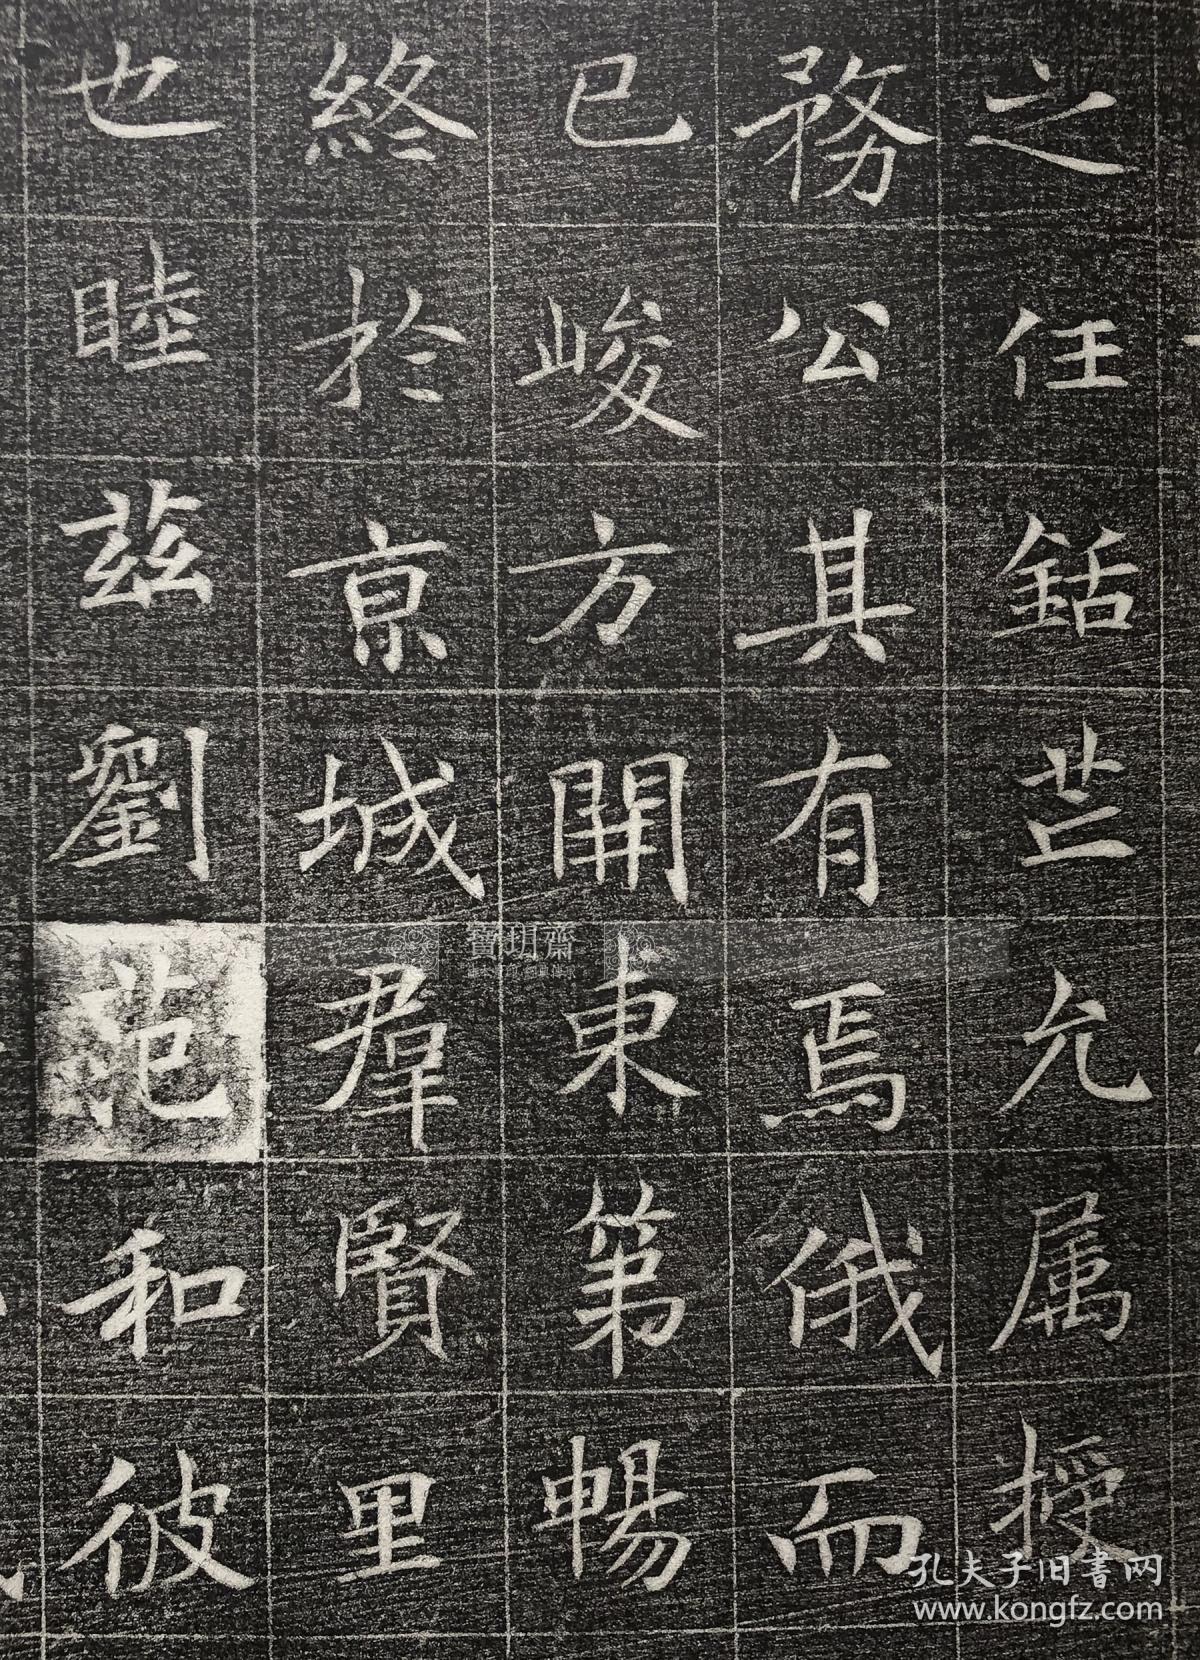 之任銛芒允属授
務公其有焉俄而
已峻方開東第暢
終於京城羣賢里
也睦茲劉范和彼
寶玥齋
孔夫子旧書网
www.kongfz.com